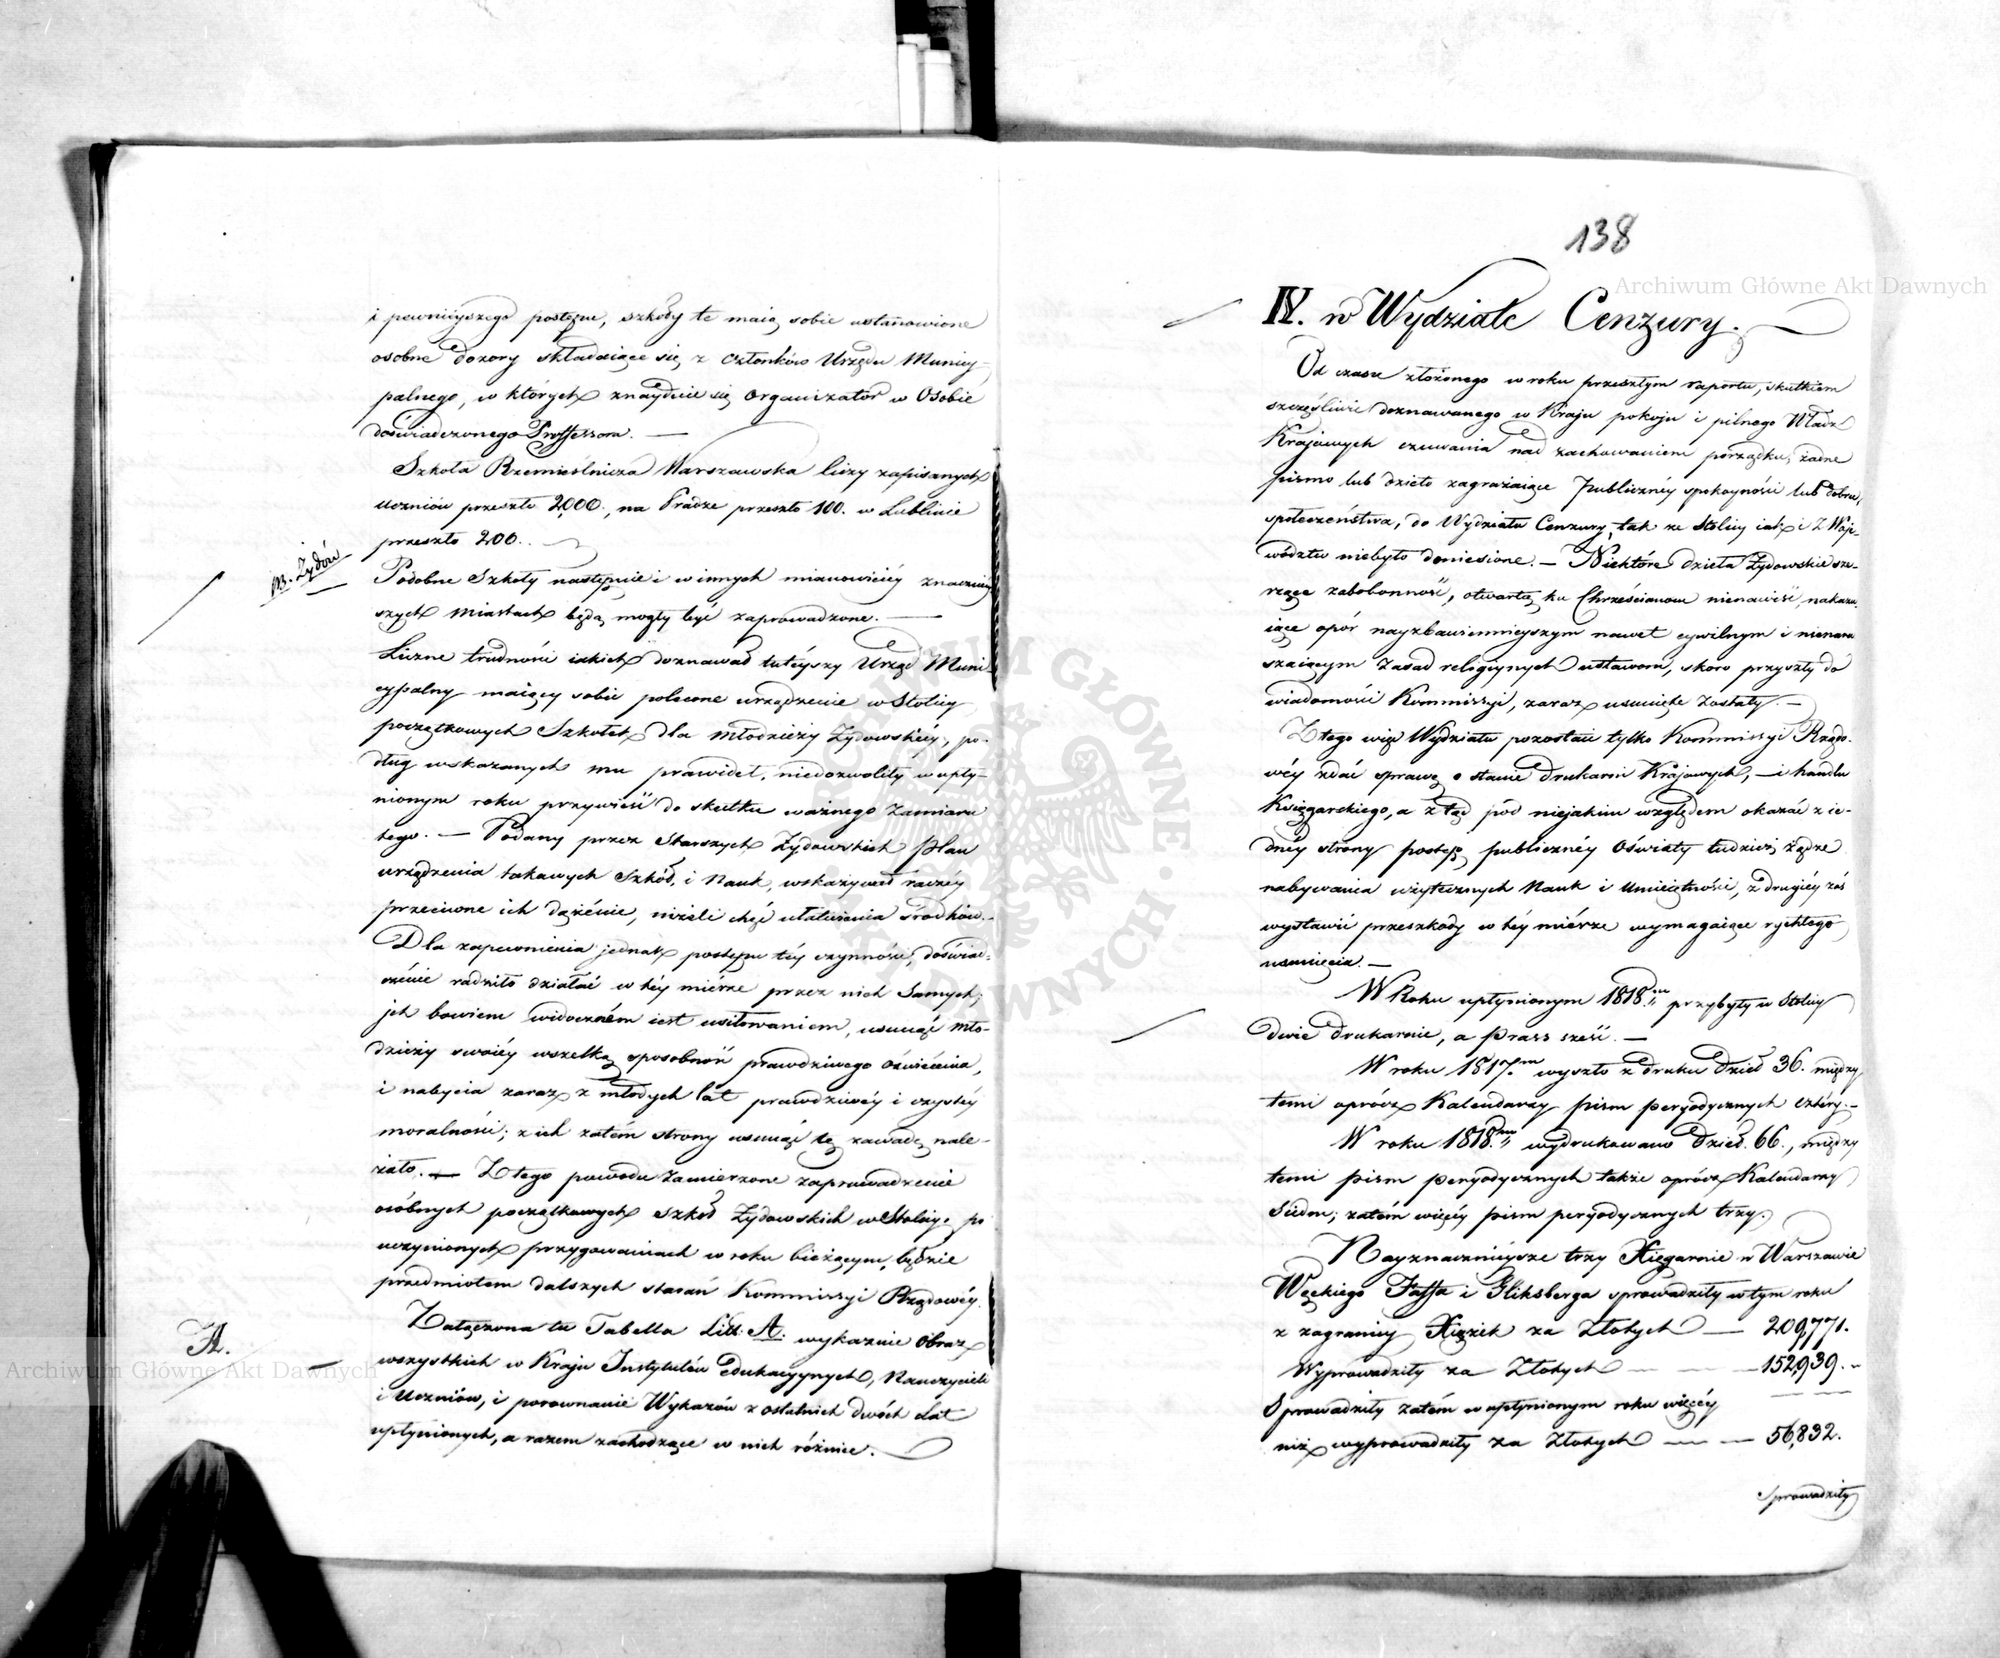 i pewnieyszego postępu, szkoły te maią sobie ustanowione
osobne dozory składaiące się z Członków Urzędu Municy-
palnego, w których znayduie się Organizator w Osobie
doświadczonego Professora. —
Szkoła Rzemieślnicza Warszawska liczy zapisanych
uczniów przeszło 2,000., na Pradze przeszło 100. w Lublinie
przeszło 200.
NB. Żydów
Podobne Szkoły następnie i w innych mianowiciéy znaczniéy
szych Miastach będą mogły być zaprowadzone. —
Liczne trudności iakich doznawał tuteyszy Urząd Muni
cypalny maiący sobie polecone urządzenie w Stolicy
początkowych Szkółek dla młodzieży Żydowskiéy, po-
dług wskazanych mu prawideł, niedozwoliły w upły-
nionym roku przywieść do skutku ważnego zamiaru
tego. — Podany przez Starszych Żydowskich plan
urządzenia takowych Szkół, i Nauk, wskazywał raczéy
przeciwne ich dążenie, niżeli chęć ułatwienia środków. —
Dla zapewnienia jednak postępu téy czynności, doświad-
czenie radziło działać w téy mierze przez nich Samych;
ich bowiem widoczném iest usiłowaniem, usunąć mło-
dzieży swoiéy wszelką sposobność prawdziwego oświecenia,
i nabycia zaraz z młodych lat prawdziwéy i czystéy
moralności; z ich zatém strony usunąć tę zawadę nale-
żało. — Z tego powodu zamierzone zaprowadzenie
osóbnych początkowych szkół Żydowskich w Stolicy, po
uczynionych przygotowaniach w roku bieżącym, będzie
przedmiotem dalszych starań Kommissyi Rządowéy.
A.
Załączona tu Tabella Litt: A. wykazuie obraz
wszystkich w Kraju Instytutów Edukacyynych, Nauczycieli
i Uczniów, i porównanie Wykazów z ostatnich dwóch lat
upłynionych, a razem zachodzące w nich różnice. —
138
IV. w Wydziale Cenzury. —
Od czasu złożonego w roku przeszłym raportu, skutkiem
szczęśliwie doznawanego w Kraju pokoju i pilnego Władz
Krajowych czuwania nad zachowaniem porządku, żadne
pismo lub dzieło zagrażaiące Publicznéy spokoyności lub dobru,
społeczeństwa, do Wydziału Cenzury, tak ze Stolicy iak i z Woje-
wództw niebyło doniesione. — Niektóre dzieła Żydowskie sze-
rzące zabobonność, otwartą ku Chrześcianom nienawiść, nakazu-
iące opór nayzbawiennieyszym nawet cywilnym i nienaru
szaiącym zasad religiynych ustawom, skoro przyszły do
wiadomości Kommissyi, zaraz usunięte zostały. —
Z tego więc Wydziału pozostaie tylko Kommissyi Rządo-
wéy zdać sprawę o stanie drukarń Krajowych, — i handlu
Księgarskiego, a ztąd pod niejakim względem okazać z ie-
dnéy strony postęp publicznéy Oświaty tudzież żądzę
nabywania użytecznych Nauk i Umieiętności, z drugiéy zaś
wystawić przeszkody w téy mierze wymagaiące rychłego
usunięcia. —
W Roku upłynionym 1818.m przybyły w Stolicy
dwie drukarnie, a prass sześć. —
W roku 1817.m wyszło z druku dzieł 36. między
temi oprócz Kalendarzy pism peryodycznych cztéry. —
W roku 1818.m wydrukowano dzieł 66., między
temi pism peryodycznych także oprócz Kalendarzy
siedm; zatém więcéy pism peryodycznych trzy.
Nayznacznieysze trzy Xięgarnie w Warszawie
Węckiego Zassa i Gliksberga sprowadziły w tym roku
z zagranicy Xiążek za Złotych — 209,771.
Wyprowadziły za Złotych — — — 152,939. —
Sprowadziły zatém w upłynionym roku więcéy
niż wyprowadziły za Złotych — — — 56,832.
Sprowadziły
Archiwum Główne Akt Dawnych
Archiwum Główne Akt Dawnych
ARCHIWUM GŁÓWNE AKT DAWNYCH